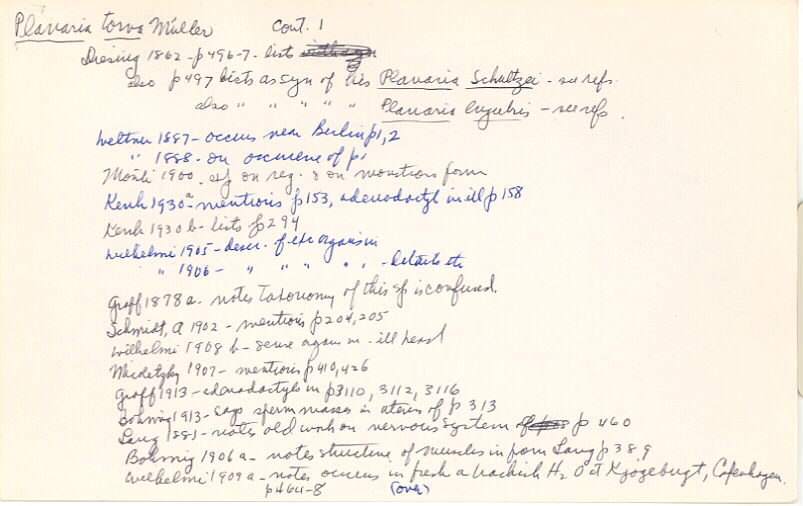 Planaria torva Müller cont. 1
Diesing 1862 - p 496-7 - lists
also p 497 lists as syn of his Planaria Schultzei - see refs.
also " " " " " Planaria lugubris - see refs.
Weltner 1887 - occurs near Berlin p 1, 2
" 1888 - on occurence of p 1
Monti 1900 - on reg. & on monstrous form
Kenk 1930a - mentions p 153, adenodactyl in ill p 158
Kenk 1930 b - lists p 294
Wilhelmi 1905 - descr. of exc organs in
" 1906 - " " " " - details etc
Graff 1878 a - notes taxonomy of this sp is confused.
Schmidt, A 1902 - mentions p 204, 205
Wilhelmi 1908 b - sense organ in - ill head
Micoletzky 1907 - mentions p 410, 426
Graff 1913 - adenodactyls in p 3110, 3112, 3116
Böhmig 1913 - says sperm masses in uterus of p 313
Lang 1881 - notes old work on nervous system p 460
Böhmig 1906 a - notes structure of muscles in from Lang p 389
Wilhelmi 1909 a - notes occurs in fresh & brackish H2O at Kjögebugt, Copenhagen.
p 464-8 (over)